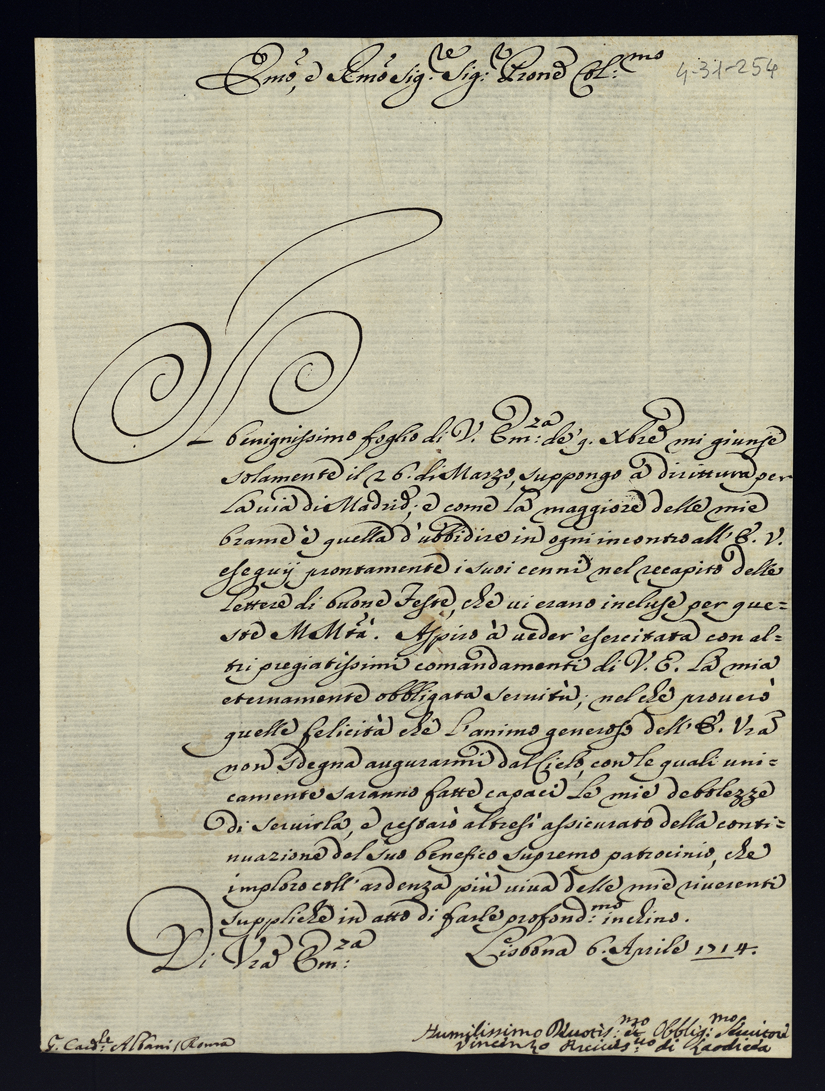 Emo, e Rmo Sig.re Sig.r Prone Col:mo
4-31-254
Il benignissimo foglio di V. Em:za de' 9. Xbre mi giunse
solamente il 26. di Marzo, suppongo à dirittura per
la via di Madrid; e come la maggiore delle mie
brame è quella d'ubbidire in ogni incontro all' E. V.
eseguij prontamente i suoi cenni nel recapito delle
lettere di buone Feste, che vi erano incluse per que=
ste MMtà. Aspiro à veder' esercitata con al=
tri pregiatissimi comandamenti di V. E. la mia
eternamente obbligata servitù; nel che proverò
quelle felicità che l'animo generoso dell' E. Vra
non sdegna augurarmi dal Cielo, con le quali uni=
camente saranno fatte capaci le mie debolezze
di servirla, e restarò altresì assicurato della conti=
nuazione del suo benefico supremo patrocinio, che
imploro coll' ardenza più viva delle mie riverenti
suppliche in atto di farle profond:mo inchino.
Di Vra Em:za Lisbona 6. Aprile 1714.
Humilissimo Devotis:mo et Obblig:mo Servitore
Sr. Card:le Albani / Roma
Vincenzo Arcives:vo di Laodicea